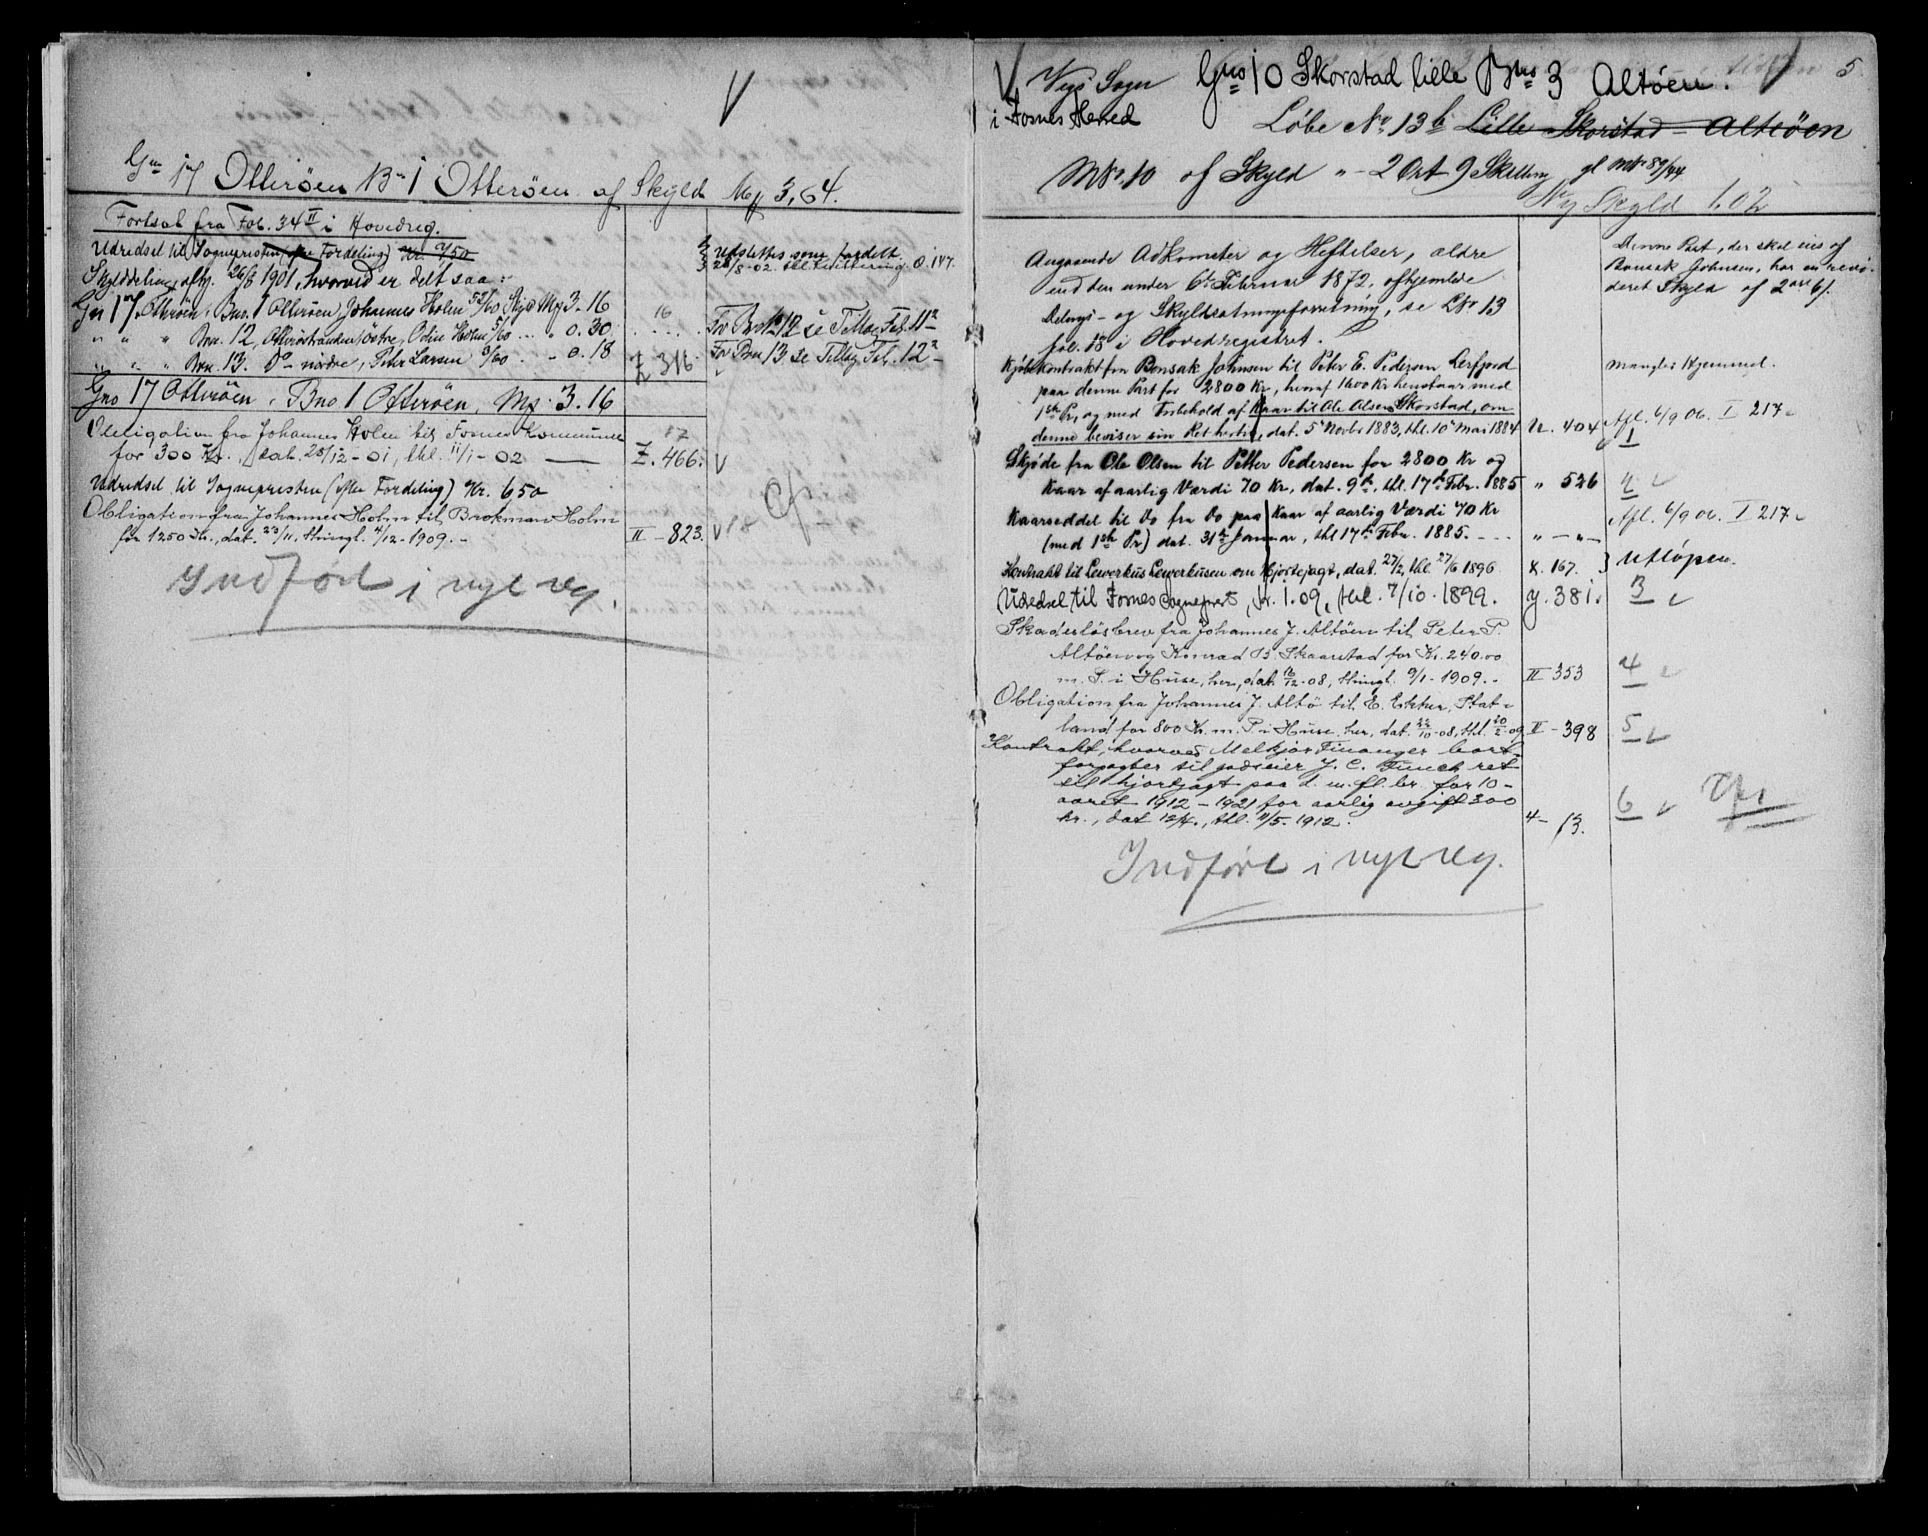 Gno 17 Otterøen Bno 1 Otterøen af Skyld Mk 3,64.
Fortsat fra Fol. 34 II i Hovedreg.
Udredsel til Sognepresten (efter Fordeling) Kr. 7/50
Udslettes som fordelt
28/8-02. Kvittering O. 147.
Skylddeling afh. 26/8 1901, hvorved er delt saa:
Gn 17, Otterøen, Bno. 1 Otterøen, Johannes Holm 52/60 Skyld Mk 3-16
" " " Bno. 12, Otterøstranden østre, Odin Holm 5/60 ... " 0.30. 16 For Bno 12 se Tillæg Fol. 11²
" " " Bno. 13. Do nordre, Peter Larsen 3/60 . . " 0.18 Z 316 For Bno 13 se Tillæg Fol. 12²
Gno 17 Otterøen, Bno 1 Otterøen, Mk. 3.16
Obligation fra Johannes Holm til Fosnes Kommune 17
for 300 Kr., dat. 28/12-01, thl. 11/1-02 — Z. 466. V
Udredsel til Sognepresten (efter Fordeling) Kr. 6 50
Obligation fra Johannes Holm til Brokman Holm
for 1250 Kr., dat. 23/11, thingl. 4/12-1909. - II - 823. V 18
Indført i nyt reg.
Vigs Sogn Gno 10 Skorstad lille Bno 3 Altøen. 5
i Fosnes Herred
Løbe No 13b Lille Skorstad - Altøen
MNo. 10 af Skyld " - 2 Ort 9 Skilling gl MNo 89/44
Ny Skyld 1.02
Angaaende Adkomster og Heftelser, ældre
end den under 6te Februar 1872, afhjemlede
Delings- og Skyldsætningsforretning, se LNo 13
fol. 18 i Hovedregistret.
Denne Part, der skal eies af
Bonsak Johnsen, har en revi-
deret Skyld af 2 ort 6 ẞ.
Kjøbekontrakt fra Bonsak Johnsen til Peter E. Pedersen Lerfjord
paa denne Part for 2800 Kr, heraf 1600 Kr henstaar med
1ste Pr, og med Forbehold af Kaar til Ole Olsen Skorstad, om
denne beviser sin Ret hertil, dat. 5 Novbr 1883, thl. 10 Mai 1884 U. 404
Mangler Hjemmel.
Afl. 6/9 06. I 217.
1
Skjøde fra Ole Olsen til Petter Pedersen for 2800 Kr og
Kaar af aarlig Værdi 70 Kr, dat. 9de, thl. 17de Febr. 1885 " 526 2
Kaarseddel til Do fra Do paa Kaar af aarlig Værdi 70 Kr
(med 1ste Pr) dat. 31te Januar, thl 17de Febr. 1885. - - - " - " - Afl. 6/9 06. I 217.
Kontrakt til Lewerkus Lewerkusen om Hjortejagt, dat. 27/2, thl. 27/6 1896 X. 167. } Utløpen.
Udredsel til Fosnes Sogneprest, kr. 1.09, thl. 7/10-1899. Y. 381. 3
Skadesløsbrev fra Johannes J. Altøen til Peter P.
Altøen og Konrad B. Skaarstad for Kr. 240.00
m. P. i Huse, her, dat. 16/12-08, thingl. 9/1-1909. - II 353 4
Obligation fra Johannes J. Altø til E. Ekker, Stat-
land for 800 Kr. m. P i Huse, her, dat. 22/10-08, thl. 20/2-09 II - 398 5
Kontrakt, hvorved Melkjor Finanger bort-
forpagter til godseier J. C. Finch ret
til hjortjagt paa d. m. fl. br. for 10-
aaret 1912-1921 for aarlig avgift 300
kr., dat 12/4., thl. 11/5. 1912. 4 - 13. 6
Indført i nyt reg.